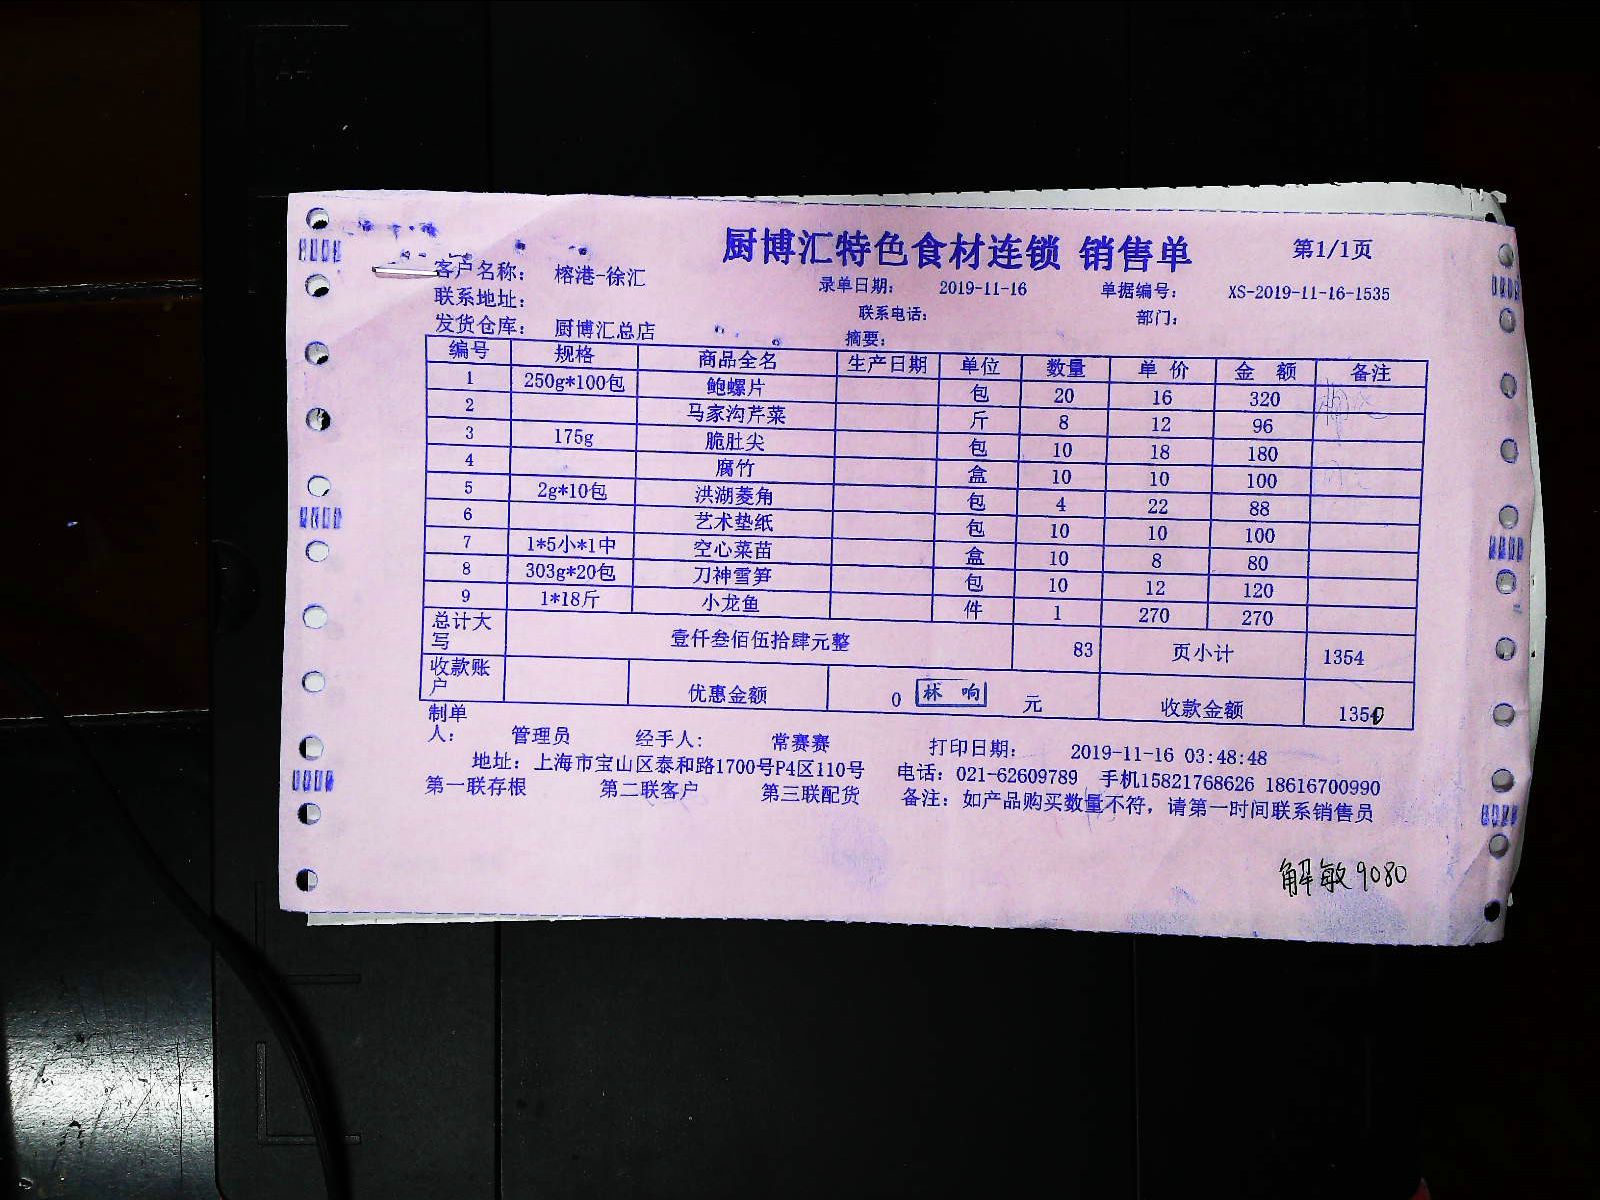 厨博汇特色食材连锁 销售单 第1/1页
客户名称： 榕港-徐汇 录单日期： 2019-11-16 单据编号： XS-2019-11-16-1535
联系地址： 联系电话： 部门：
发货仓库： 厨博汇总店 摘要：
编号 规格 商品全名 生产日期 单位 数量 单价 金额 备注
1 250g*100包 鲍螺片 包 20 16 320
2 马家沟芹菜 斤 8 12 96
3 175g 脆肚尖 包 10 18 180
4 腐竹 盒 10 10 100
5 2g*10包 洪湖菱角 包 4 22 88
6 艺术垫纸 包 10 10 100
7 1*5小*1中 空心菜苗 盒 10 8 80
8 303g*20包 刀神雪笋 包 10 12 120
9 1*18斤 小龙鱼 件 1 270 270
总计大写 壹仟叁佰伍拾肆元整 83 页小计 1354
收款账户 优惠金额 0 林响 元 收款金额 1350
制单人： 管理员 经手人： 常赛赛 打印日期： 2019-11-16 03:48:48
地址：上海市宝山区泰和路1700号P4区110号 电话：021-62609789 手机15821768626 18616700990
第一联存根 第二联客户 第三联配货 备注：如产品购买数量不符，请第一时间联系销售员
解敏9080